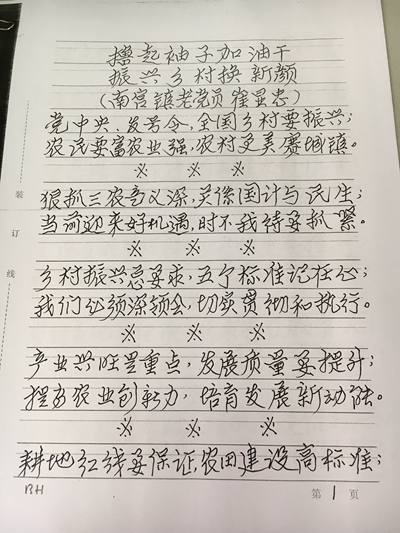 撸起袖子加油干
振兴乡村换新颜
(南宫镇老党员崔显忠)
党中央、发号令,全国乡村要振兴;
农民要富农业强,农村更美赛城镇。
※ ※ ※
狠抓三农意义深,关係国计与民生;
当前迎来好机遇,时不我待要抓紧。
※ ※ ※
乡村振兴总要求,五个标准记在心;
我们必须深领会,切实贯彻和执行。
※ ※ ※
产业兴旺是重点,发展质量要提升;
提高农业创新力,培育发展新动能。
※ ※ ※
耕地红线要保证,农田建设高标准;
装
订
线
第1页